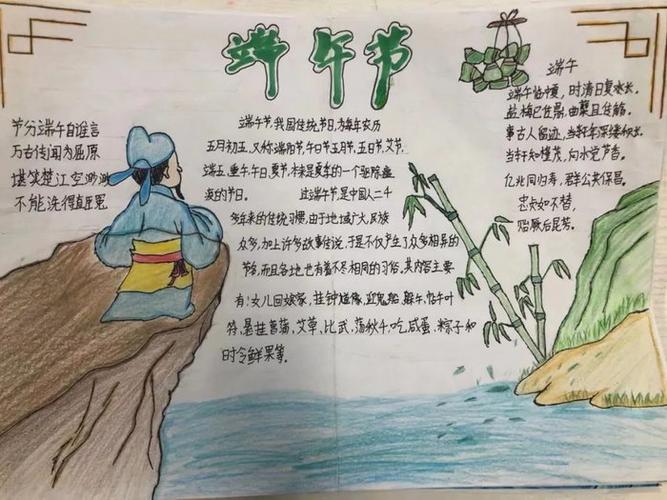 端午节
节分端午自谁言
万古传闻为屈原
堪笑楚江空渺渺
不能洗得直臣冤
端午节,我国传统节日,为每年农历
五月初五,又称端阳节,午日节,五月节,五日节,艾节,
端五,重午,午日,夏节,本来是夏季的一个驱除瘟
疫的节日。 过端午节是中国人二千
多年来的传统习惯,由于地域广大,民族
众多,加上许多故事传说,于是不仅产生了众多相异的
节名,而且各地也有着不尽相同的习俗。其内容主要
有:女儿回娘家,挂钟馗像,迎鬼船,躲午,帖午叶
符,悬挂菖蒲,艾草,比武,荡秋千,吃咸蛋,粽子和
时令鲜果等。
端午
端午临中夏,时清日复长。
盐梅已佐鼎,曲糵且传觞。
事古人留迹,年深缕积长。
当轩知槿茂,向水觉芦香。
亿兆同归寿,群公共保昌。
忠贞如不替,
贻厥后昆芳。